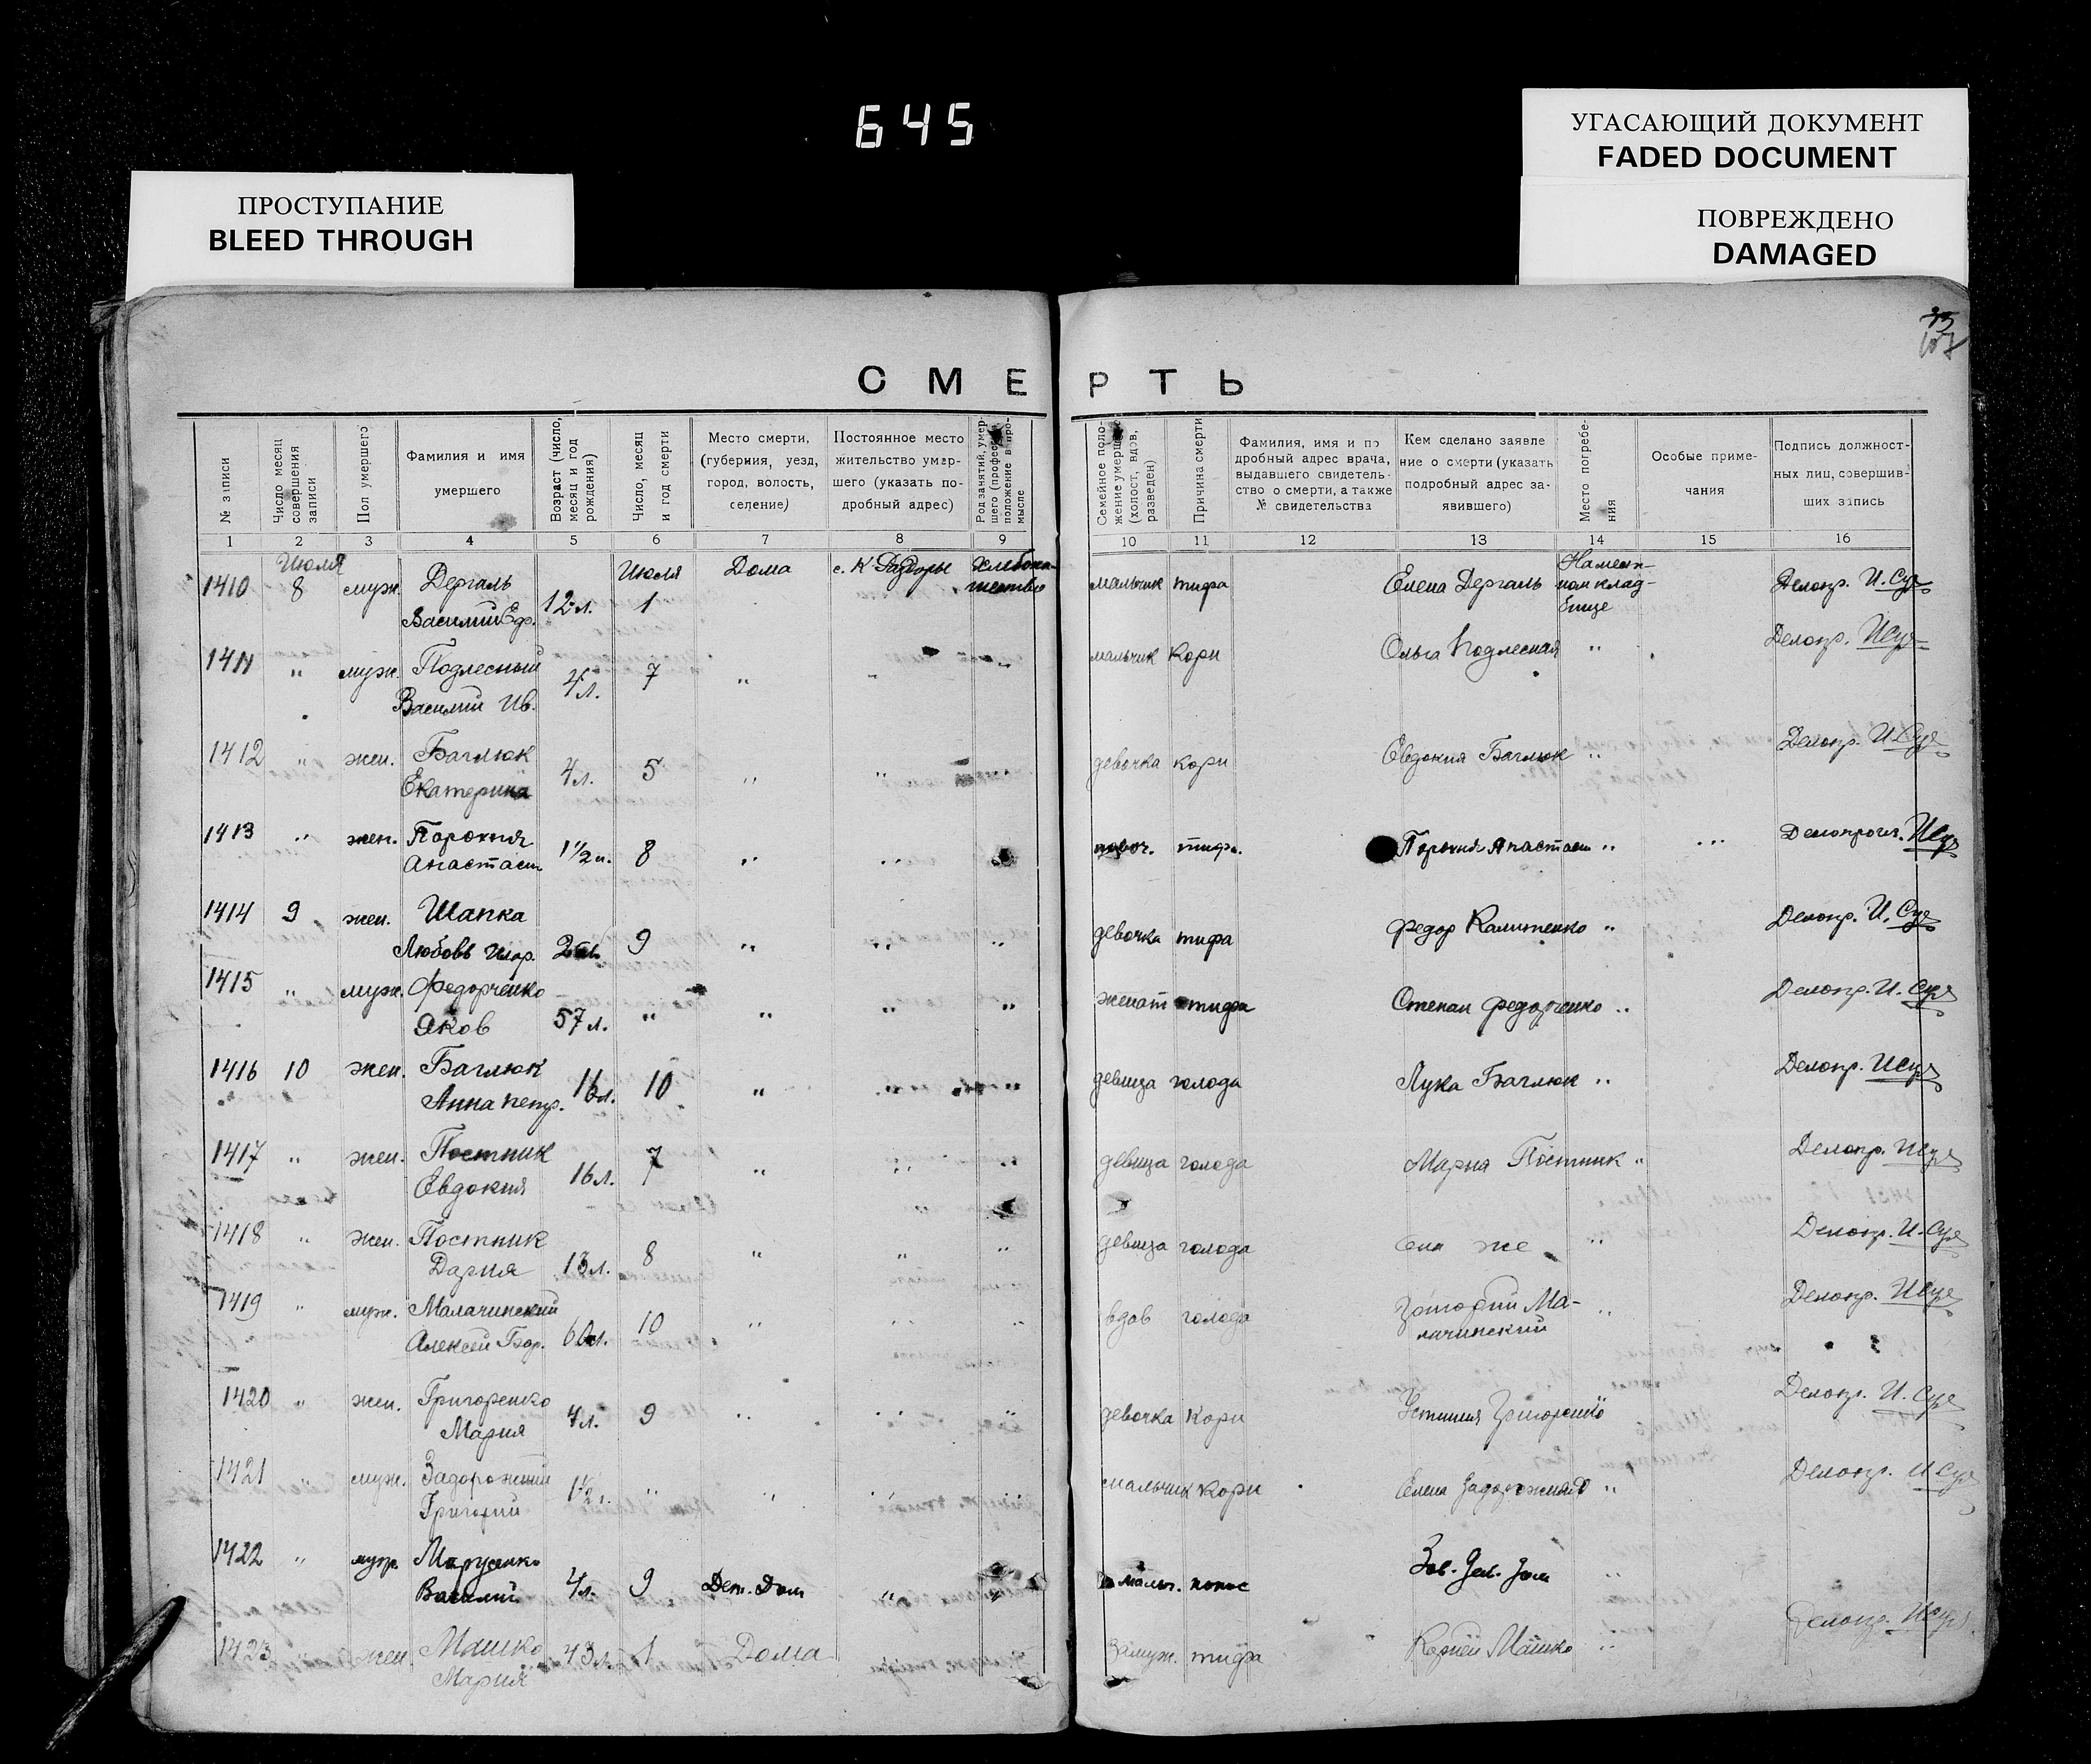 645
УГАСАЮЩИЙ ДОКУМЕНТ
FADED DOCUMENT
ПОВРЕЖДЕНО
DAMAGED
ПРОСТУПАНИЕ
BLEED THROUGH
СМЕРТЬ
№ записи
Число месяц совершения записи
Пол умершего
Фамилия и имя умершего
Возраст (число, месяц и год рождения)
Число, месяц и год смерти
Место смерти, (губерния, уезд, город, волость, селение)
Постоянное место жительство умершего (указать подробный адрес)
Род занятий, умершего (профессия положение в промысле
Семейное положение умершего (холост, вдов, разведен)
Причина смерти
Фамилия, имя и подробный адрес врача, выдавшего свидетельство о смерти, а также № свидетельства
Кем сделано заявление о смерти (указать подробный адрес заявившего)
Место погребения
Особые примечания
Подпись должностных лиц, совершивших запись
1 2 3 4 5 6 7 8 9 10 11 12 13 14 15 16
1410 Июля 8 муж. Дергаль Василий 12 л. Июля 1 Дома с. К Раздоры мальчик тифа Елена Дергаль Делопр.
1411 " муж. Подлесный Василий Ив. 4 л. 7 " " " мальчик кори Ольга Подлесная " Делопр.
1412 " жен. Баглюк Екатерина 4 л. 5 " " девочка кори Евдокия Баглюк " Делопр.
1413 " жен. Порохня 1 1/2 8 " " тифа "
1414 9 жен. Шапка Любовь 9 " " " девочка тифа Федор " Делопр.
1415 " муж. Федорченко Яков 57 л. " " " " женат тифа Степан Федорченко " Делопр.
1416 10 жен. Баглюк Анна Петр. 16 л. 10 " " " девица голода Лука Баглюк " Делопр.
1417 " жен. Постник Евдокия 16 л. 7 " " " девица голода Мария Постник " Делопр.
1418 " жен. Постник Дария 13 л. 8 " " " девица голода же " Делопр.
1419 " муж. Малачинский Алексей 60 л. 10 " " " вдов голода Григорий Малачинский " Делопр.
1420 " жен. Григоренко Мария 4 л. 9 " " " девочка кори Устиния Григоренко Делопр.
1421 " муж. Задорожний Григорий 1 1/2 " " " мальчик кори Елена Задорожная " Делопр.
1422 " муж. Василий 4 л. 9 Дет. Дом " " мальч. понос Зав. Дет. Дом "
1423 жен. Машко Мария 43 л. 1 Дома замуж. тифа Корней Машко " Делопр.